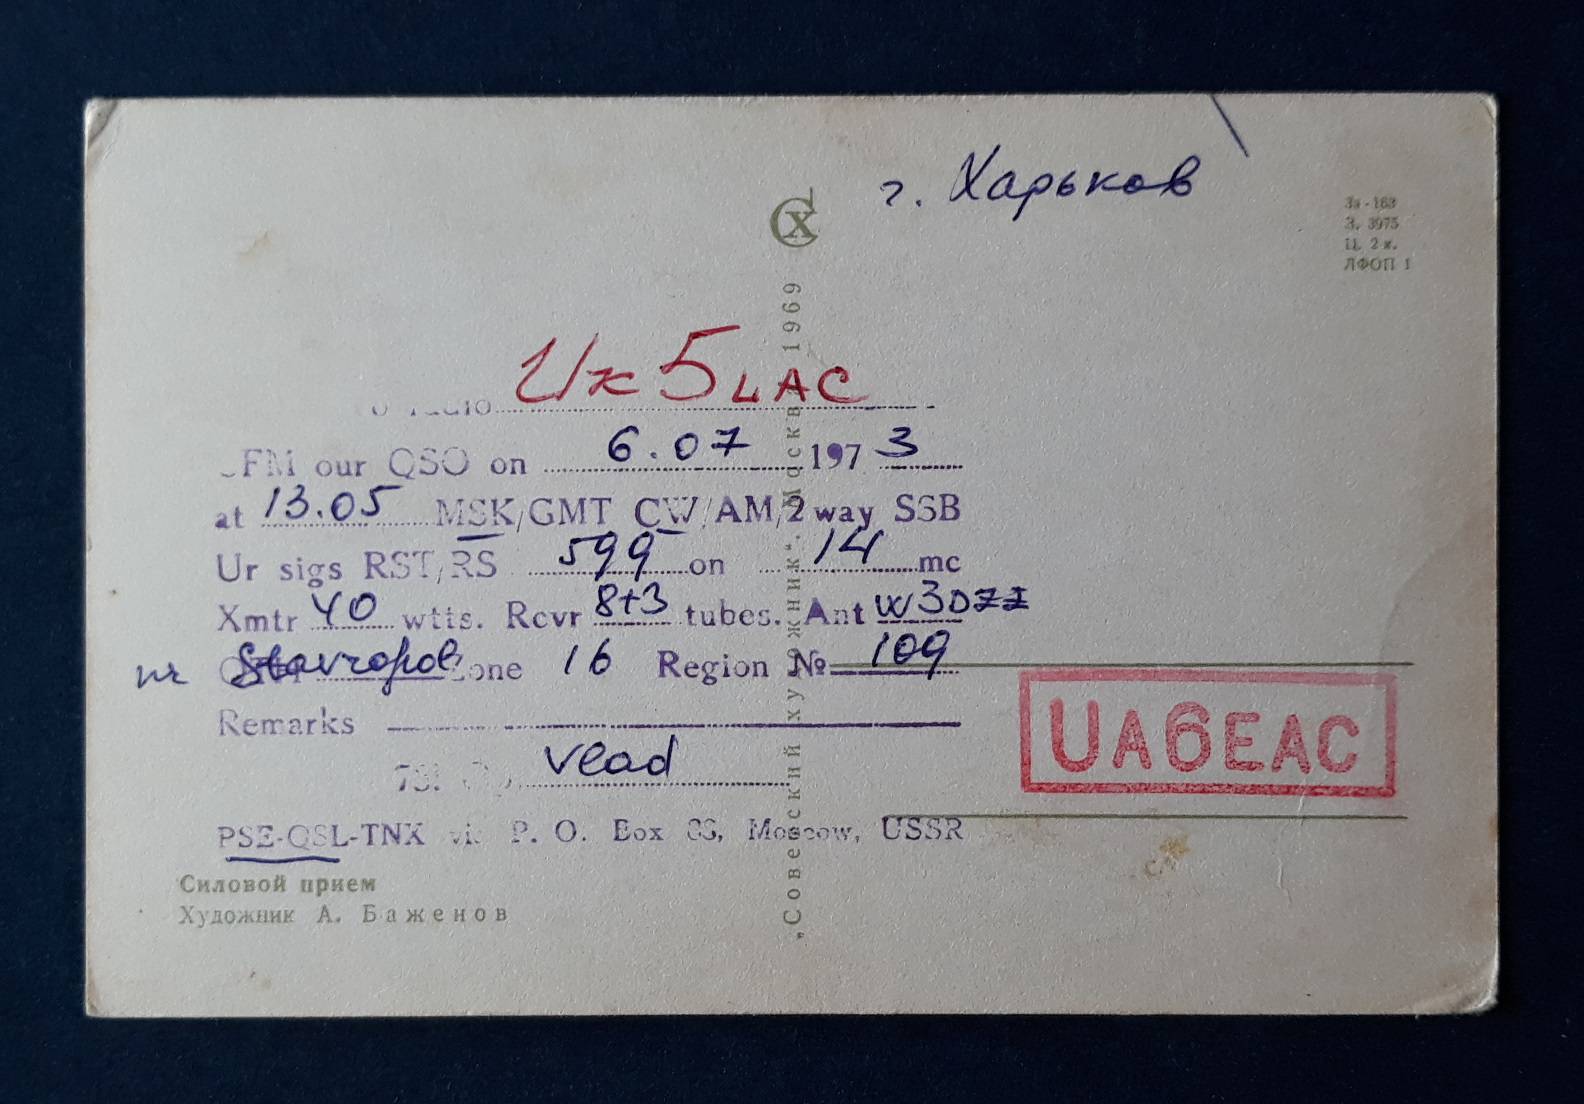 г. Харьков
За-163
З. 3975
Ц. 2 к.
ЛФОП 1
СХ
radio UK5LAC
CFM our QSO on 6.07 1973
at 13.05 MSK/GMT CW/AM/2 way SSB
Ur sigs RST/RS 599 on 14 mc
Xmtr 40 wtts. Rcvr 8+3 tubes. Ant W3DZZ
nr Stavropol Zone 16 Region № 109
Remarks
UA6EAC
73! Op. Vlad
PSE-QSL-TNX via P. O. Box 88, Moscow, USSR
Силовой прием
Художник А. Баженов
„Советский художник“. Москва 1969